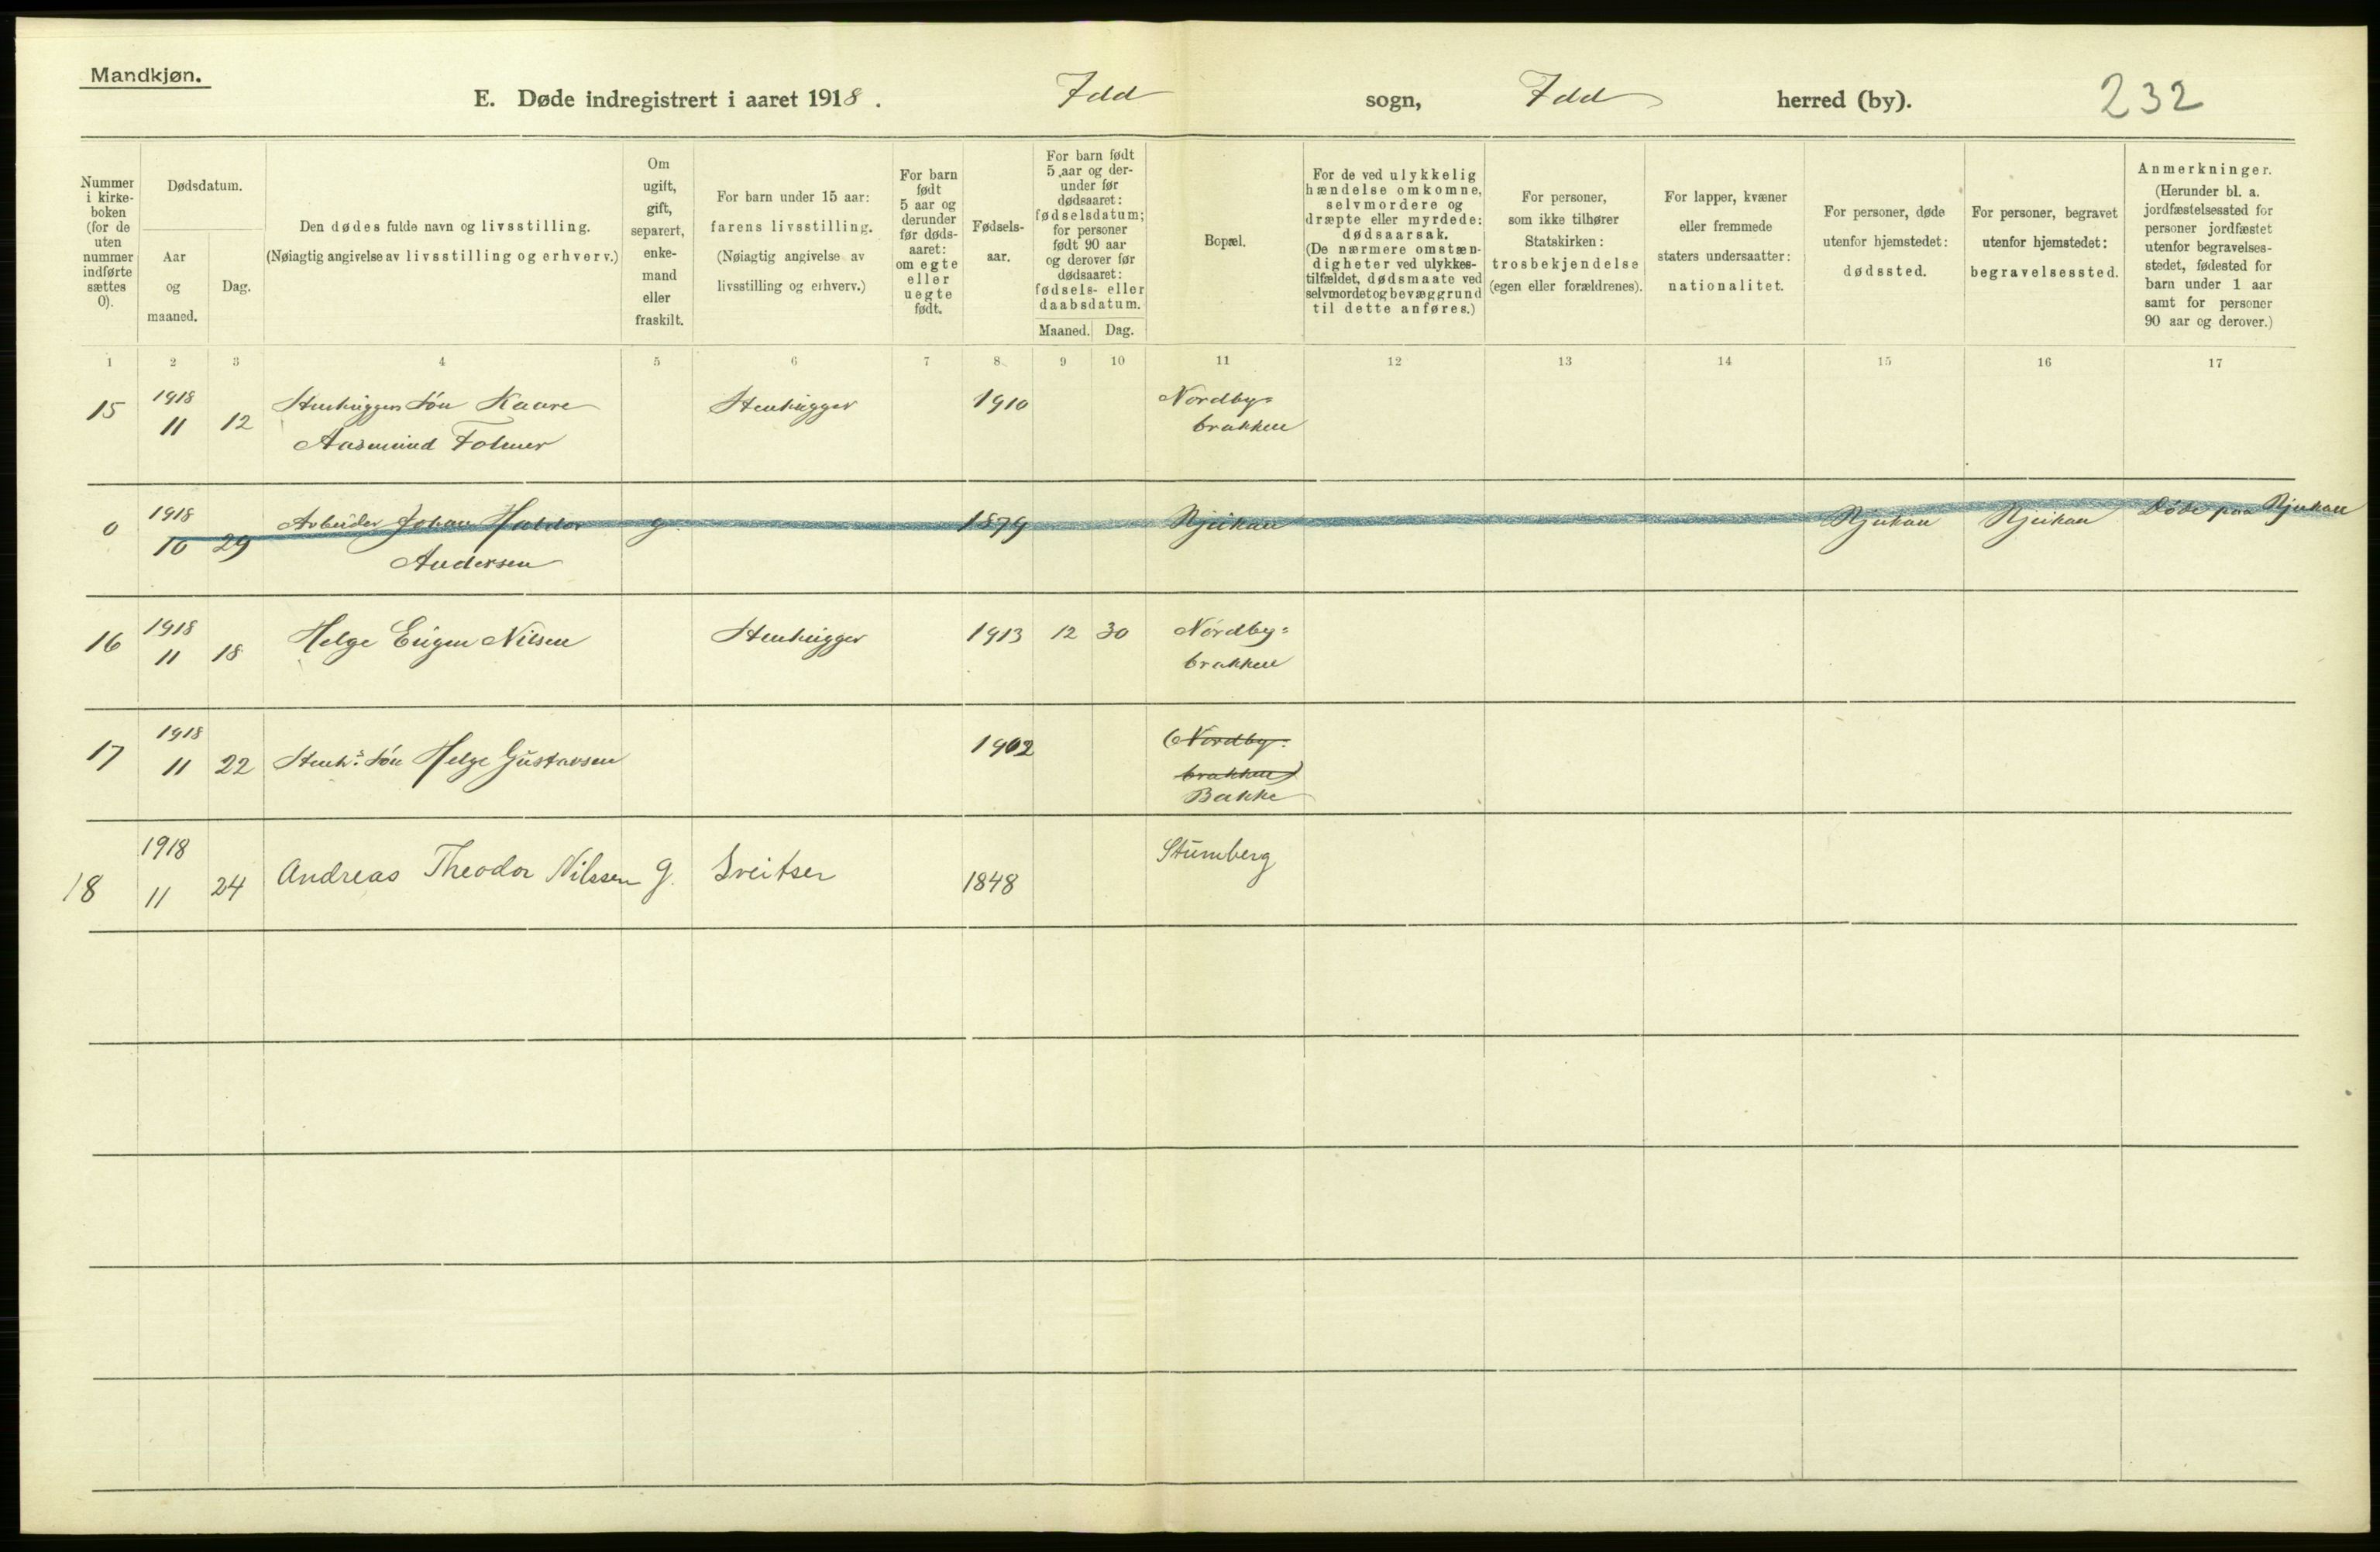 Mandkjøn.
E. Døde indregistrert i aaret 1918. Idd sogn, Idd herred (by). 232
Nummer i kirke-boken (for de uten nummer indførte sættes 0).
Dødsdatum.
Aar og maaned.
Dag.
Den dødes fulde navn og livsstilling.
(Nøiagtig angivelse av livsstilling og erhverv.)
Om ugift, gift, separert, enke-mand eller fraskilt.
For barn under 15 aar:
farens livsstilling.
(Nøiagtig angivelse av livsstilling og erhverv.)
For barn født 5 aar og derunder før døds-aaret: om egte eller uegte født.
Fødsels-aar.
For barn født 5 aar og der-under før dødsaaret: fødselsdatum; for personer født 90 aar og derover før dødsaaret: fødsels- eller daabsdatum.
Maaned. Dag.
Bopæl.
For de ved ulykkelig hændelse omkomne, selvmordere og dræpte eller myrdede: dødsaarsak. (De nærmere omstæn-digheter ved ulykkes-tilfældet, dødsmaate ved selvmordet og bevæggrund til dette anføres.)
For personer, som ikke tilhører Statskirken: trosbekjendelse (egen eller forældrenes).
For lapper, kvæner eller fremmede staters undersaatter: nationalitet.
For personer, døde utenfor hjemstedet: dødssted.
For personer, begravet utenfor hjemstedet: begravelsessted.
Anmerkninger.
(Herunder bl. a. jordfæstelsessted for personer jordfæstet utenfor begravelses-stedet, fødested for barn under 1 aar samt for personer 90 aar og derover.)
1 2 3 4 5 6 7 8 9 10 11 12 13 14 15 16 17
15 1918 11 12 Stenhuggers søn Kaare Stenhugger 1910 Nordby=
Aasmund Folmer brakken
0 1918 10 29 Arbeider Johan Haldor g. 1879 Rjukan Rjukan Rjukan Døde paa Rjukan
Andersen
16 1918 11 18 Helge Eugen Nilsen Stenhugger 1913 12 30 Nordby=
brakken
17 1918 11 22 Stenh.s søn Helge Gustavsen 1902 (Nordby=
brakken)
Bakke
18 1918 11 24 Andreas Theodor Nilssen g. Sveitser 1848 Stumberg